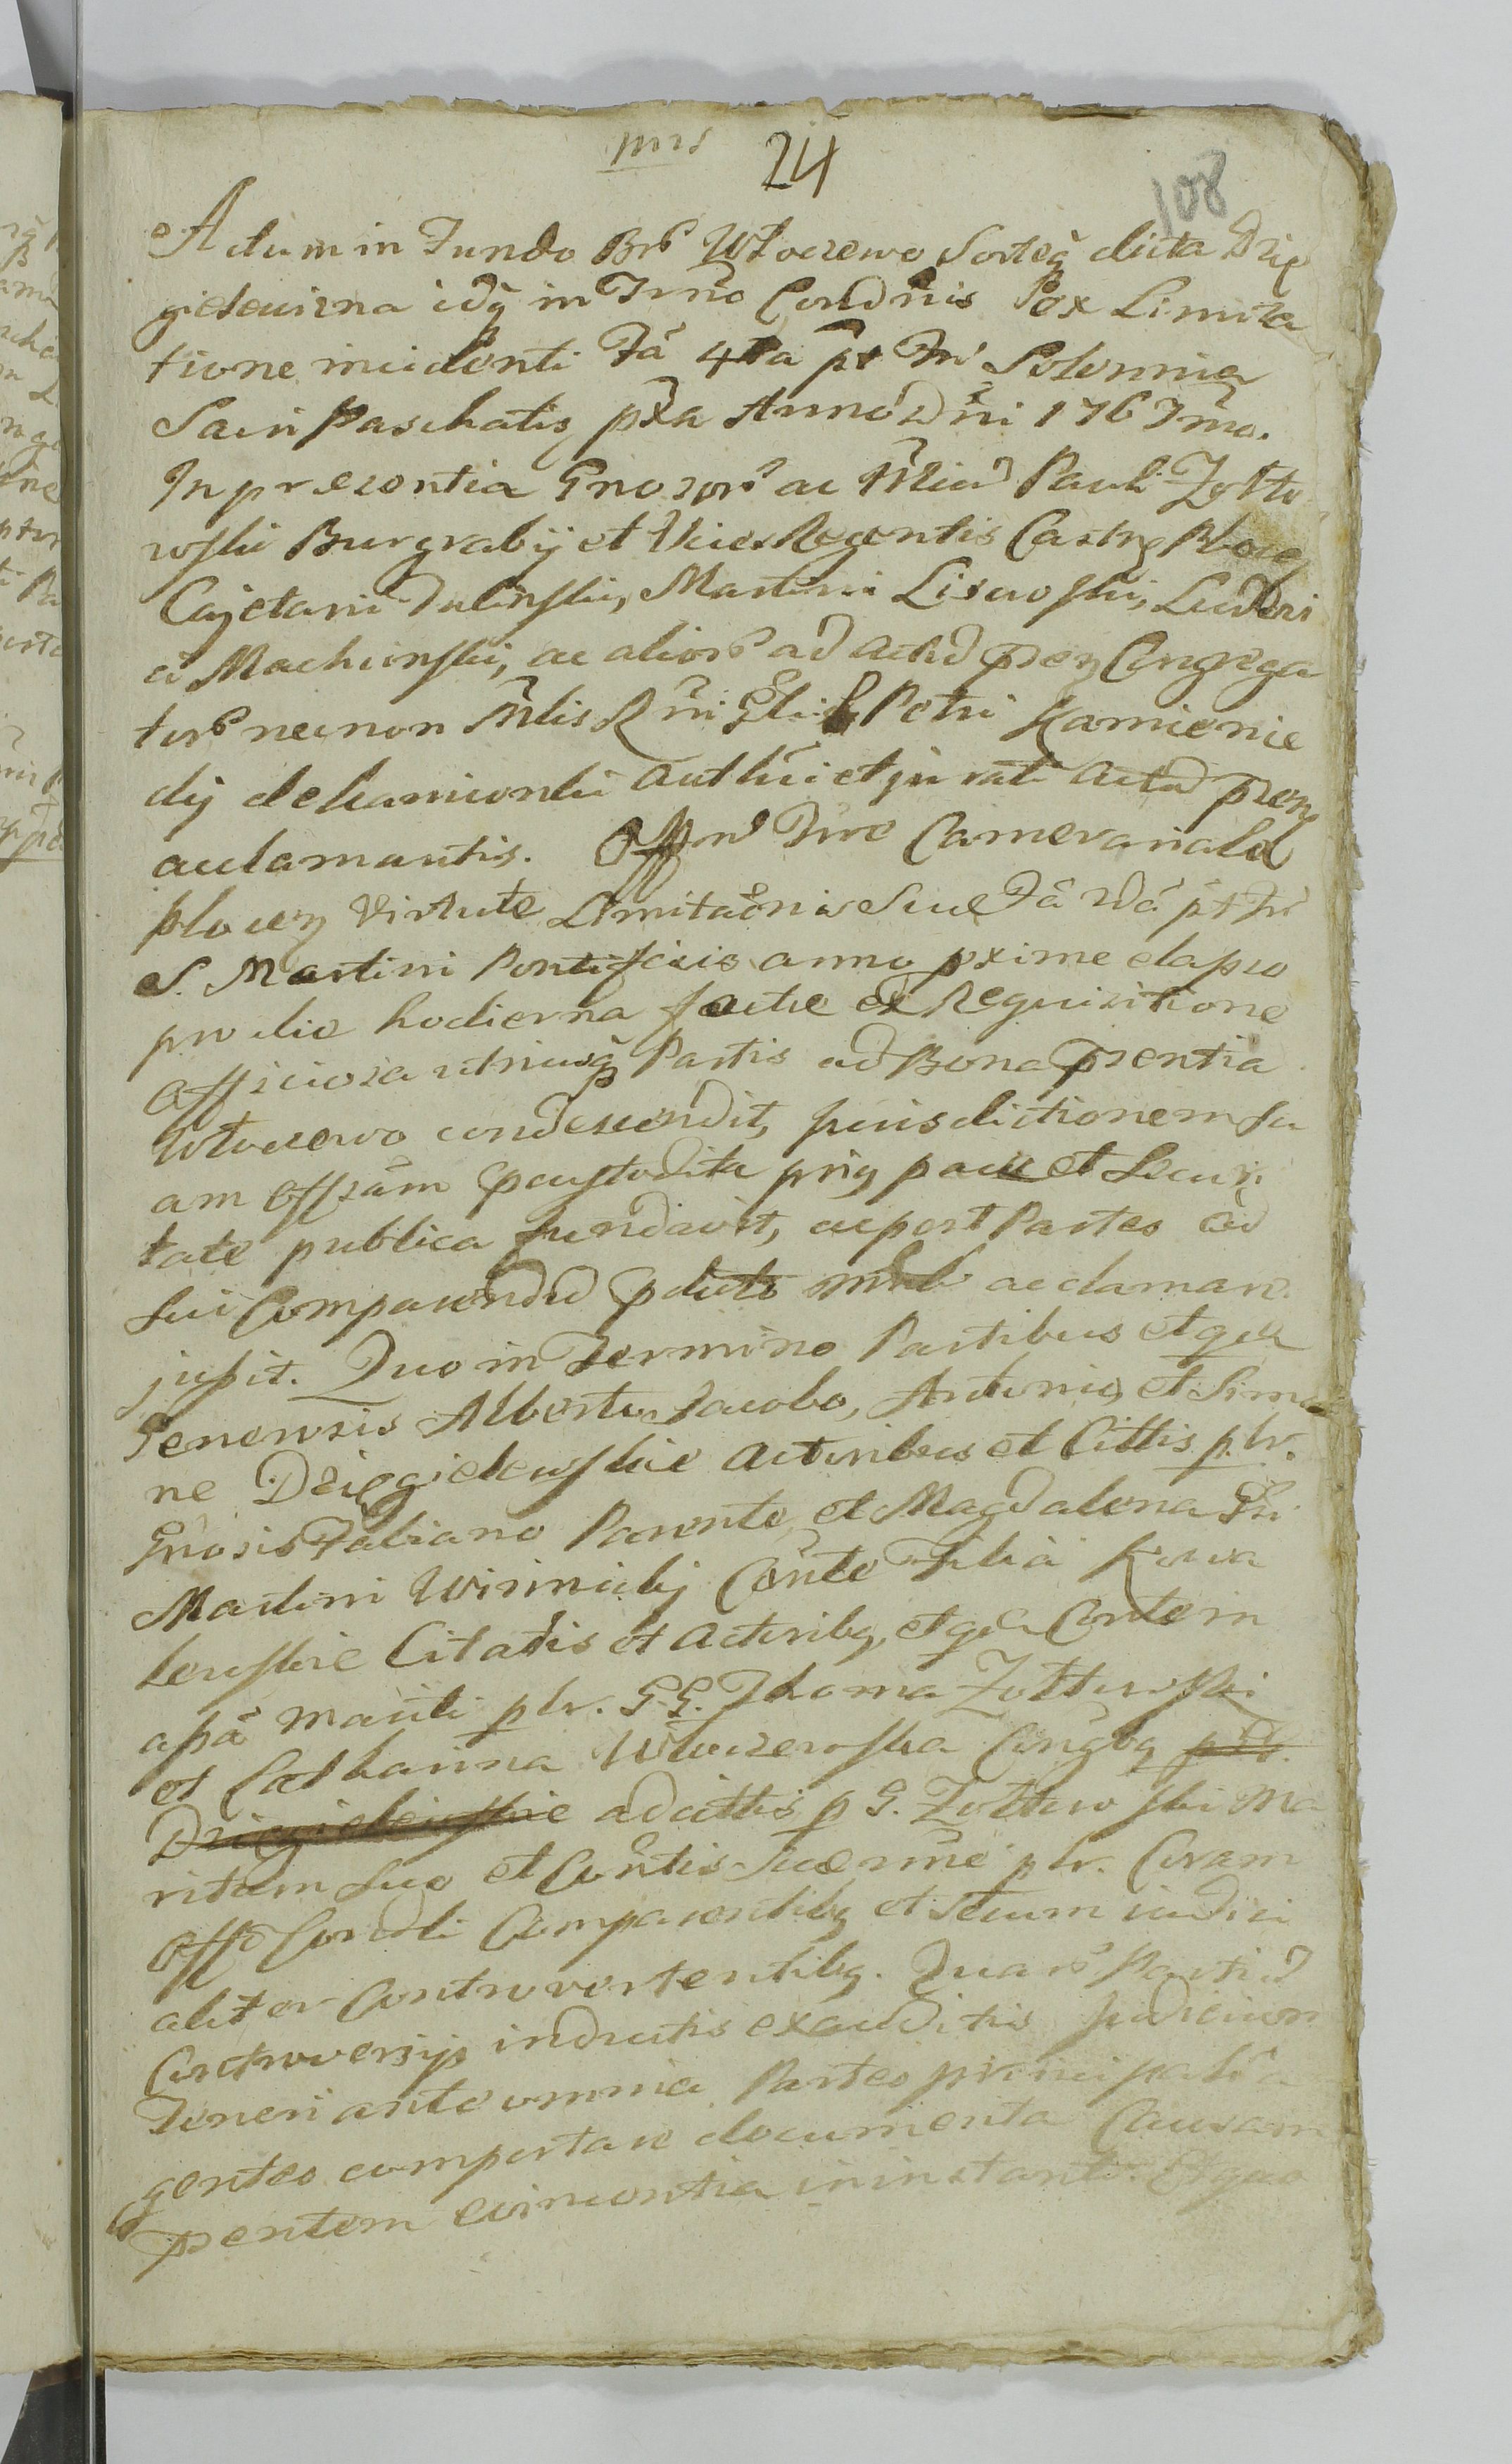 mrs 24
108
Actum in Fundo Brb Włoczewo Sorteq dicta Drię
gielewizna idq in Trno Condnis Pox Limita
tione incidenti Fa 4ta pt Fu Solennia
Sacri Paschatis pxa Anno Dni 1767mo.
In presentia Gnosorb ac Mlium Pauli Zołto
wski Burgrabij et ViceRegentis Castrę Ploce
Cajetani Dulinski, Martini Lisewoski,
a Machcinski, ac aliorb ad actum pren Congrega
torb necnon Mlis Petri Kamienie
cky de Kamionki auth et jurati actum pren
aclamantis. Offm Tvre Camerariale
plocen Virtute Limitaonis Suae Fa 2da pt Fu
S. Martini Pontificis anno pxime elapso
pro die hodierna factae ex Requisitione
Officiosa utriusq Partis ad Bona prentia
Włoczewo condescendit, jurisdictionem su
am Offsam pcustodita priq pace et Securi
tate publica fundavit, acpost Partes ad
sui Comparendum acclamare
jussit. Quo in Termino Partibus et qia
Generosis Alberto Jacobo, Antonio, et Simo
ne Dzięgielewskie Actoribus et Cittis plr.
Gnosis Fabiano Parente et Magdalena Gsi
Martini Winnicky Conte Filia Kowa
lewskie Citatis et Actoribq, et qia Contem
apa Mariti plr. G.G. Thoma Zołtowski
et Catharina Włoczewska Congbq plr.
Dzięgielewskie adcittis p G. Zołtowski Ma
ritum suo et Contis suae nne plr. Coram
Offo Condli Comparentibq et Secum iudici
aliter Controvertentibq. Quarb Partium
Controversijs inductis exauditis Judicium
Teneri ante omnia Partes principalr a
gentes comportare documenta Causam
prentem evincentia in instanti. Et quo